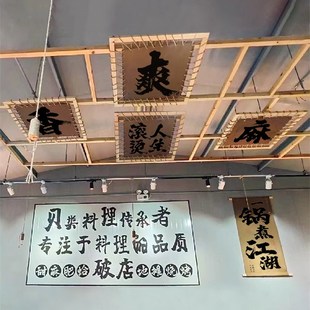 爽
香
滚烫人生
麻
贝类料理传承者
专注于料理的品质
破店
一锅煮江湖